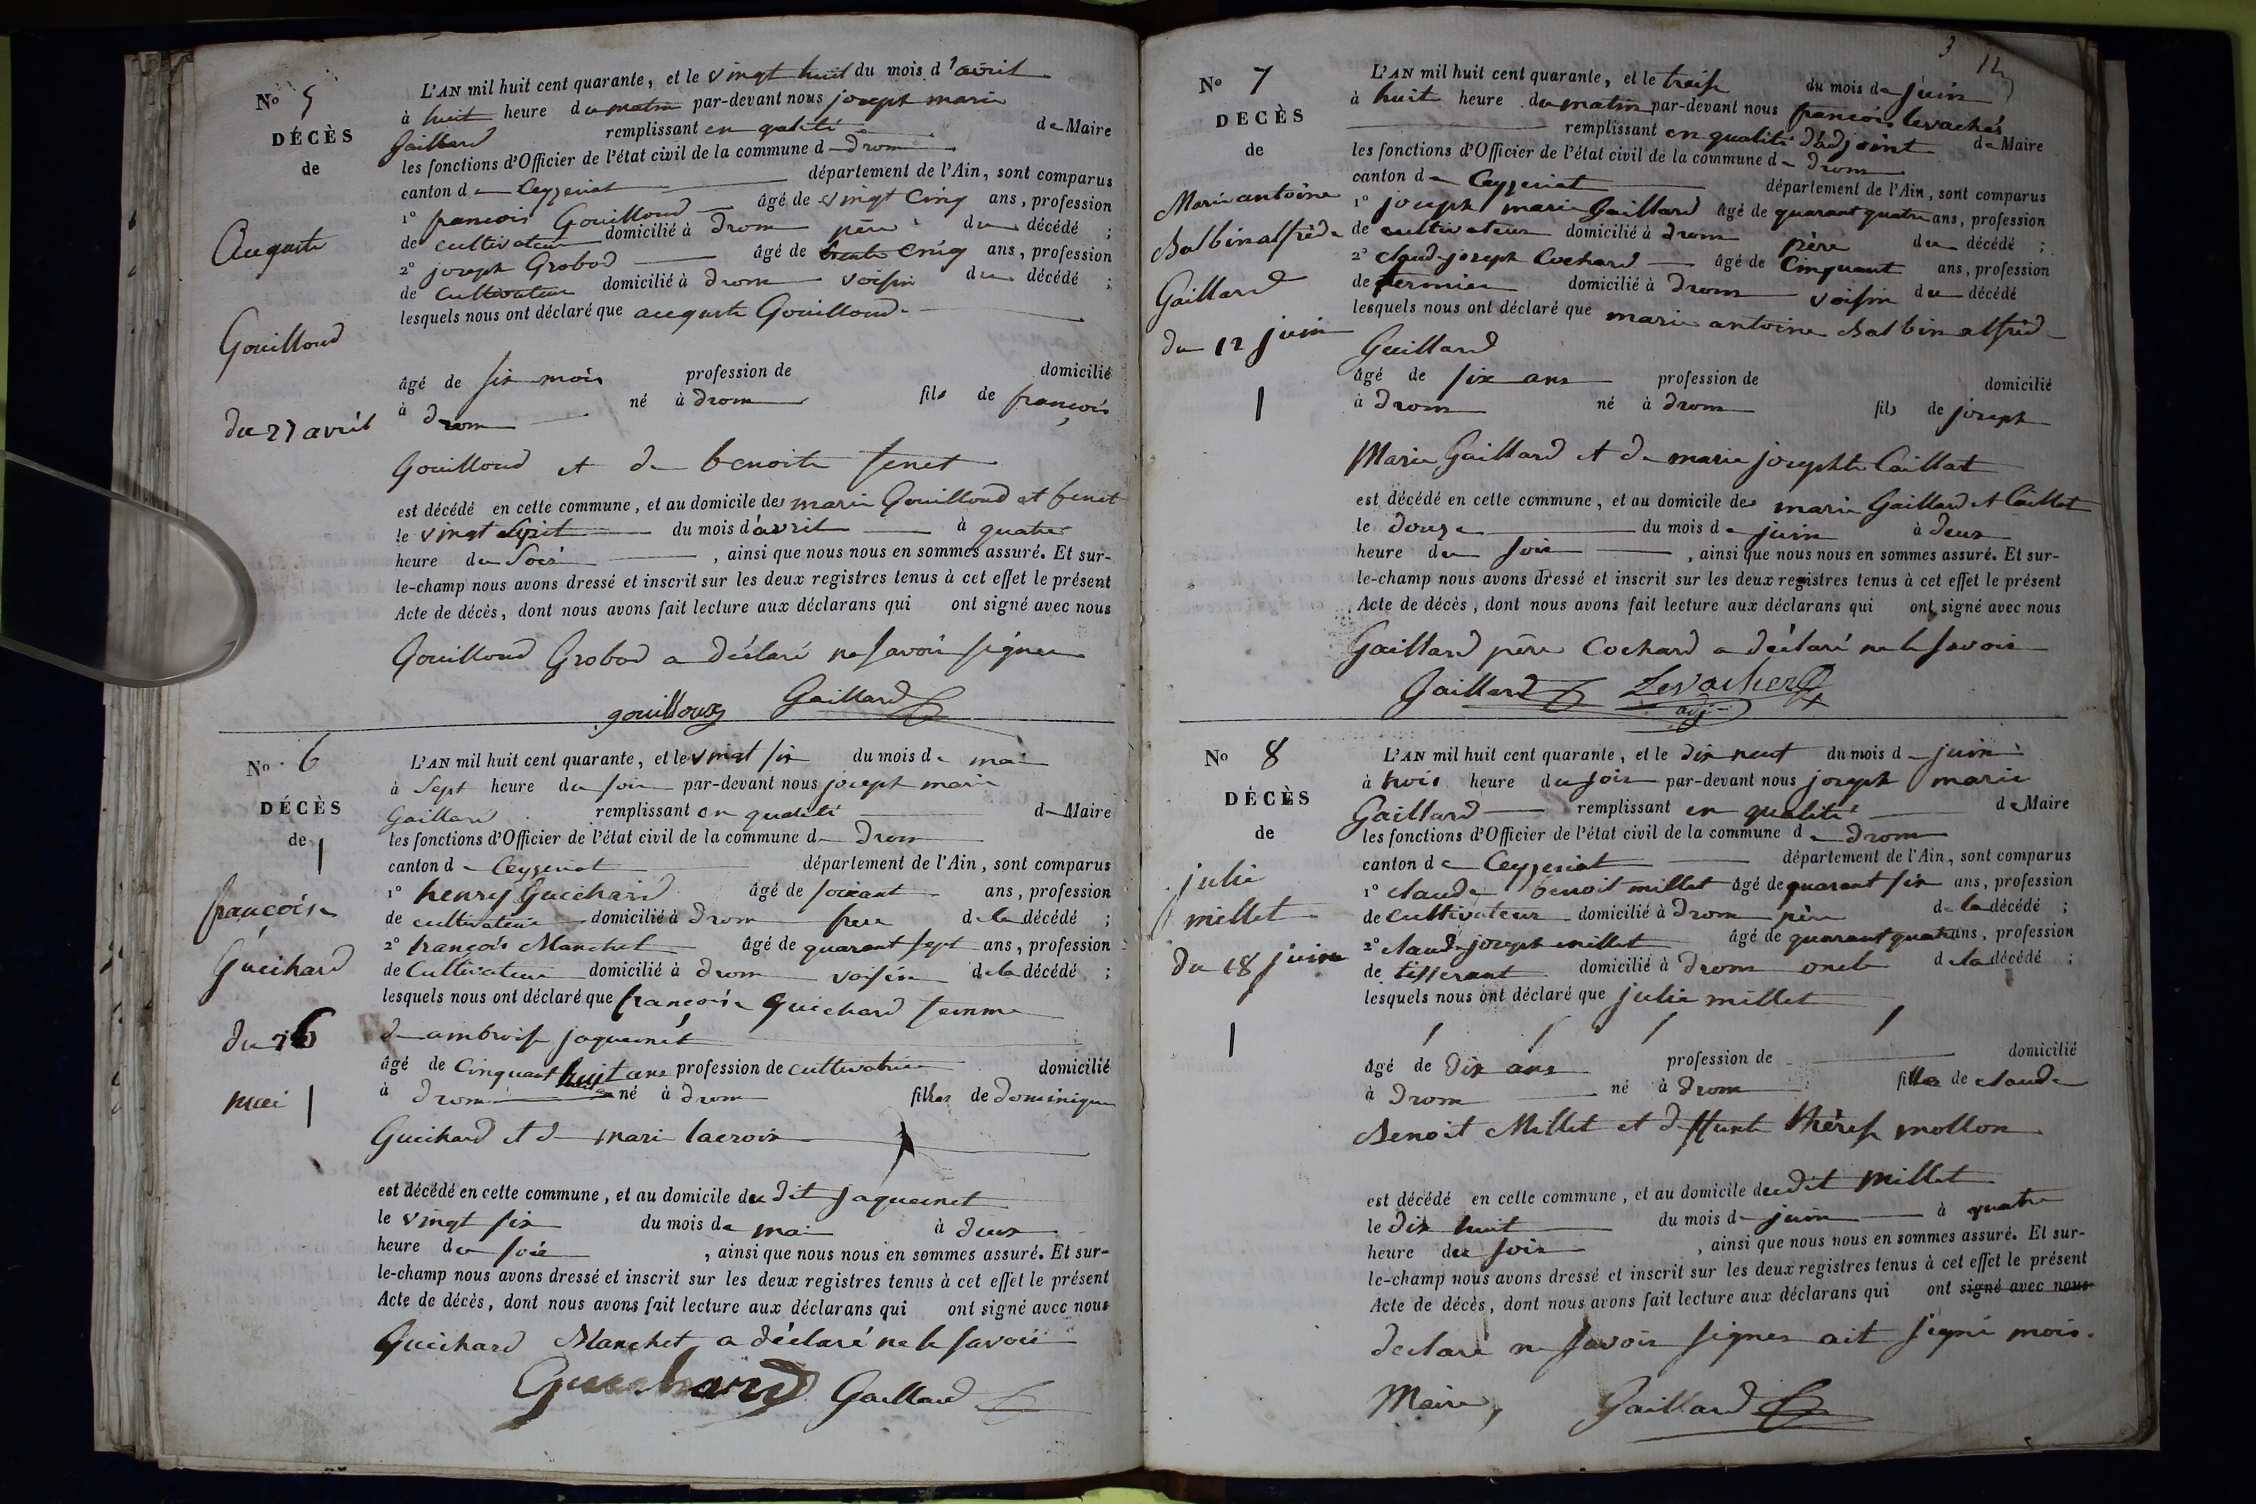 No 5
DÉCÈS
de
Auguste
Gouilloud
du 27 avril
L'AN mil huit cent quarante, et le vingt huit du mois d'avril
à huit heure du matin par-devant nous joseph marie
Gaillard remplissant en qualité de Maire
les fonctions d'Officier de l'état civil de la commune de Drom
canton de Ceyzeriat département de l'Ain, sont comparus
1º francois Gouilloud âgé de vingt cinq ans, profession
de cultivateur domicilié à Drom père du décédé ;
2º joseph Grobod âgé de trente cinq ans, profession
de Cultivateur domicilié à Drom voisin du décédé ;
lesquels nous ont déclaré que auguste Gouilloud
âgé de six mois profession de domicilié
à Drom né à Drom fils de françois
Gouilloud et de benoite fenet
est décédé en cette commune, et au domicile des marie Gouilloud et fenet
le vingt sept du mois d'avril à quatre
heure du Soir, ainsi que nous nous en sommes assuré. Et sur-
le-champ nous avons dressé et inscrit sur les deux registres tenus à cet effet le présent
Acte de décès, dont nous avons fait lecture aux déclarans qui ont signé avec nous
Gouilloud Grobod a déclaré ne savoir signer
gouilloud Gaillard
No 6
DÉCÈS
de
françoise
Guichard
du 26
mai
L'AN mil huit cent quarante, et le vingt six du mois de mai
à Sept heure du soir par-devant nous joseph marie
Gaillard remplissant en qualité de Maire
les fonctions d'Officier de l'état civil de la commune de Drom
canton de Ceyzeriat département de l'Ain, sont comparus
1º henry Guichard âgé de soixant ans, profession
de cultivateur domicilié à Drom frere de la décédé ;
2º françois Manchet âgé de quarant sept ans, profession
de Cultivateur domicilié à Drom voisin de la décédé ;
lesquels nous ont déclaré que françoise Guichard femme
de ambroise jaquemet
âgé de Cinquant huit ans profession de cultivatrice domicilié
à Drom né à Drom filles de Dominique
Guichard et de marie lacroix
est décédé en cette commune, et au domicile du dit jaquemet
le vingt six du mois de mai à deux
heure du soir, ainsi que nous nous en sommes assuré. Et sur-
le-champ nous avons dressé et inscrit sur les deux registres tenus à cet effet le présent
Acte de décès, dont nous avons fait lecture aux déclarans qui ont signé avec nous
Guichard Manchet a déclaré ne le savoir
Guichard Gaillard
3 12
No 7
DÉCÈS
de
Marie antoine
Balbin alfrède
Gaillard
du 12 juin
L'AN mil huit cent quarante, et le treise du mois de juin
à huit heure du matin par-devant nous françois levacher
remplissant en qualité d'adjoint de Maire
les fonctions d'Officier de l'état civil de la commune de Drom
canton de Ceyzeriat département de l'Ain, sont comparus
1º joseph marie Gaillard âgé de quarant quatre ans, profession
de cultivateur domicilié à Drom père du décédé ;
2º claude joseph Cochard âgé de Cinquant ans, profession
de fermier domicilié à Drom voisin du décédé
lesquels nous ont déclaré que marie antoine Balbin alfrède
Gaillard
âgé de six ans profession de domicilié
à Drom né à Drom fils de joseph
Marie Gaillard et de marie josephte Caillat
est décédé en cette commune, et au domicile des marie Gaillard et Caillat
le douze du mois de juin à deux
heure du soir, ainsi que nous nous en sommes assuré. Et sur-
le-champ nous avons dressé et inscrit sur les deux registres tenus à cet effet le présent
Acte de décès, dont nous avons fait lecture aux déclarans qui ont signé avec nous
Gaillard père Cochard a déclaré ne le savoir
Gaillard Levacher
adj
No 8
DÉCÈS
de
julie
millet
du 18 juin
L'AN mil huit cent quarante, et le dix neuf du mois de juin
à trois heure du soir par-devant nous joseph marie
Gaillard remplissant en qualité de Maire
les fonctions d'Officier de l'état civil de la commune de Drom
canton de Ceyzeriat département de l'Ain, sont comparus
1º claude benoit millet âgé de quarant six ans, profession
de Cultivateur domicilié à Drom père de la décédé ;
2º claude joseph millet âgé de quarant quatre ans, profession
de tisserant domicilié à Drom oncle de la décédé ;
lesquels nous ont déclaré que julie millet
âgé de dix ans profession de domicilié
à Drom né à Drom filles de claude
Benoit Millet et deffunte thérèse mollon
est décédé en cette commune, et au domicile du dit Millet
le dix huit du mois de juin à quatre
heure du soir, ainsi que nous nous en sommes assuré. Et sur-
le-champ nous avons dressé et inscrit sur les deux registres tenus à cet effet le présent
Acte de décès, dont nous avons fait lecture aux déclarans qui ont signé avec nous
déclaré ne savoir signer ait signé mois.
Maire, Gaillard